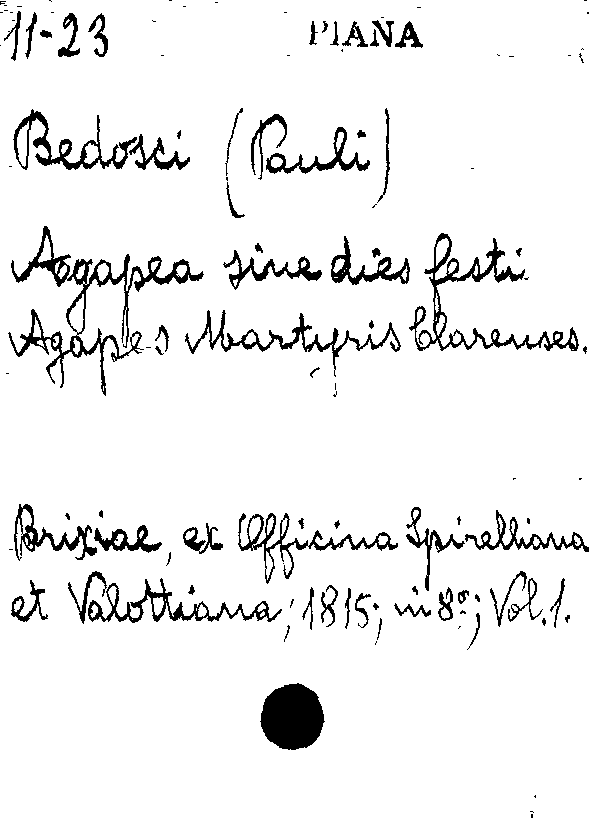 11-23 PIANA
Bedosci (Pauli)
Agapea sive dies festi
Agapes Martyris Clarenses.
Brixiae, ex Officina Spirelliana
et Valottiana; 1815; in 8º; Vol. 1.